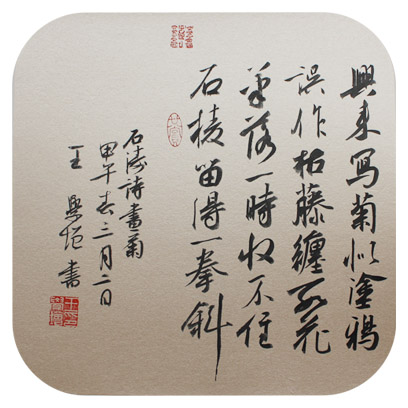 興来寫菊似塗鴉
誤作枯藤纏數花
筆落一時收不住
石棱留得一拳斜
石濤詩畫菊
甲午春三月二日
王興書